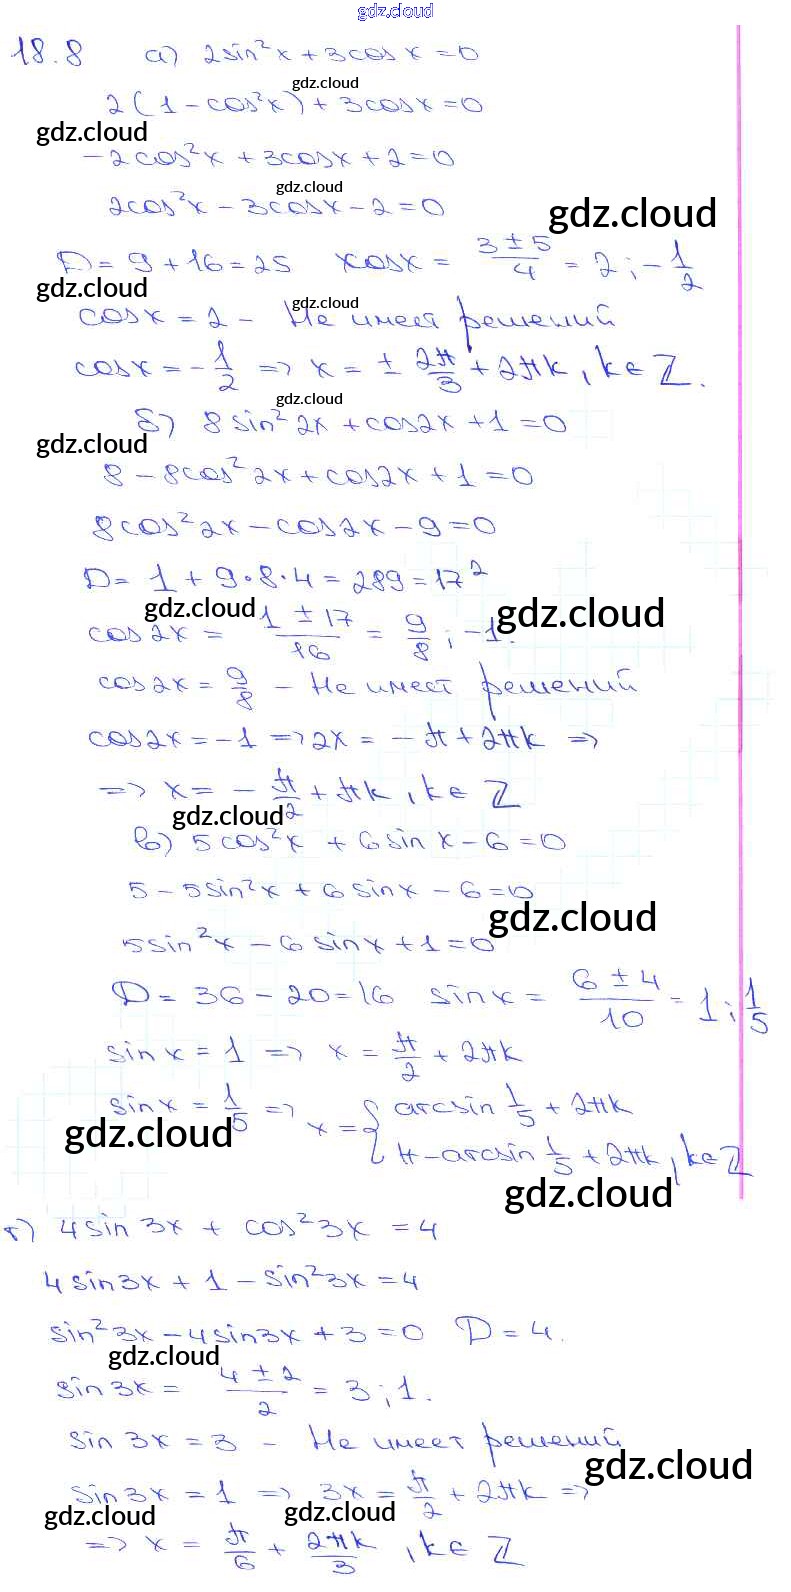 gdz.cloud
18.8 а) 2sin²x + 3cos x = 0
gdz.cloud
2(1 - cos²x) + 3cosx = 0
gdz.cloud
-2cos²x + 3cosx + 2 = 0
gdz.cloud
2cos²x - 3cosx - 2 = 0
gdz.cloud
D = 9 + 16 = 25 xosx = (3 ± 5)/4 = 2 ; -1/2
gdz.cloud
gdz.cloud
cosx = 2 - Не имеет решений
cosx = -1/2 => x = ± 2π/3 + 2πk, k∈Z.
gdz.cloud
б) 8sin²2x + cos2x + 1 = 0
gdz.cloud
8 - 8cos²2x + cos2x + 1 = 0
8cos²2x - cos2x - 9 = 0
D = 1 + 9·8·4 = 289 = 17²
gdz.cloud
gdz.cloud
cos2x = (1 ± 17)/16 = 9/8 ; -1.
cos2x = 9/8 - Не имеет решений
cos2x = -1 => 2x = -π + 2πk =>
=> x = -π/2 + πk, k∈Z
gdz.cloud
в) 5cos²x + 6sin x - 6 = 0
5 - 5sin²x + 6sinx - 6 = 0
gdz.cloud
5sin²x - 6sinx + 1 = 0
D = 36 - 20 = 16 sinx = (6 ± 4)/10 = 1 ; 1/5
sinx = 1 => x = π/2 + 2πk
sinx = 1/5 => x = { arcsin 1/5 + 2πk
gdz.cloud
π - arcsin 1/5 + 2πk, k∈Z
gdz.cloud
г) 4sin 3x + cos²3x = 4
4sin3x + 1 - sin²3x = 4
sin²3x - 4sin3x + 3 = 0 D = 4.
gdz.cloud
sin3x = (4 ± 2)/2 = 3 ; 1.
sin 3x = 3 - Не имеет решений
gdz.cloud
sin 3x = 1 => 3x = π/2 + 2πk =>
gdz.cloud
gdz.cloud
=> x = π/6 + 2πk/3, k∈Z